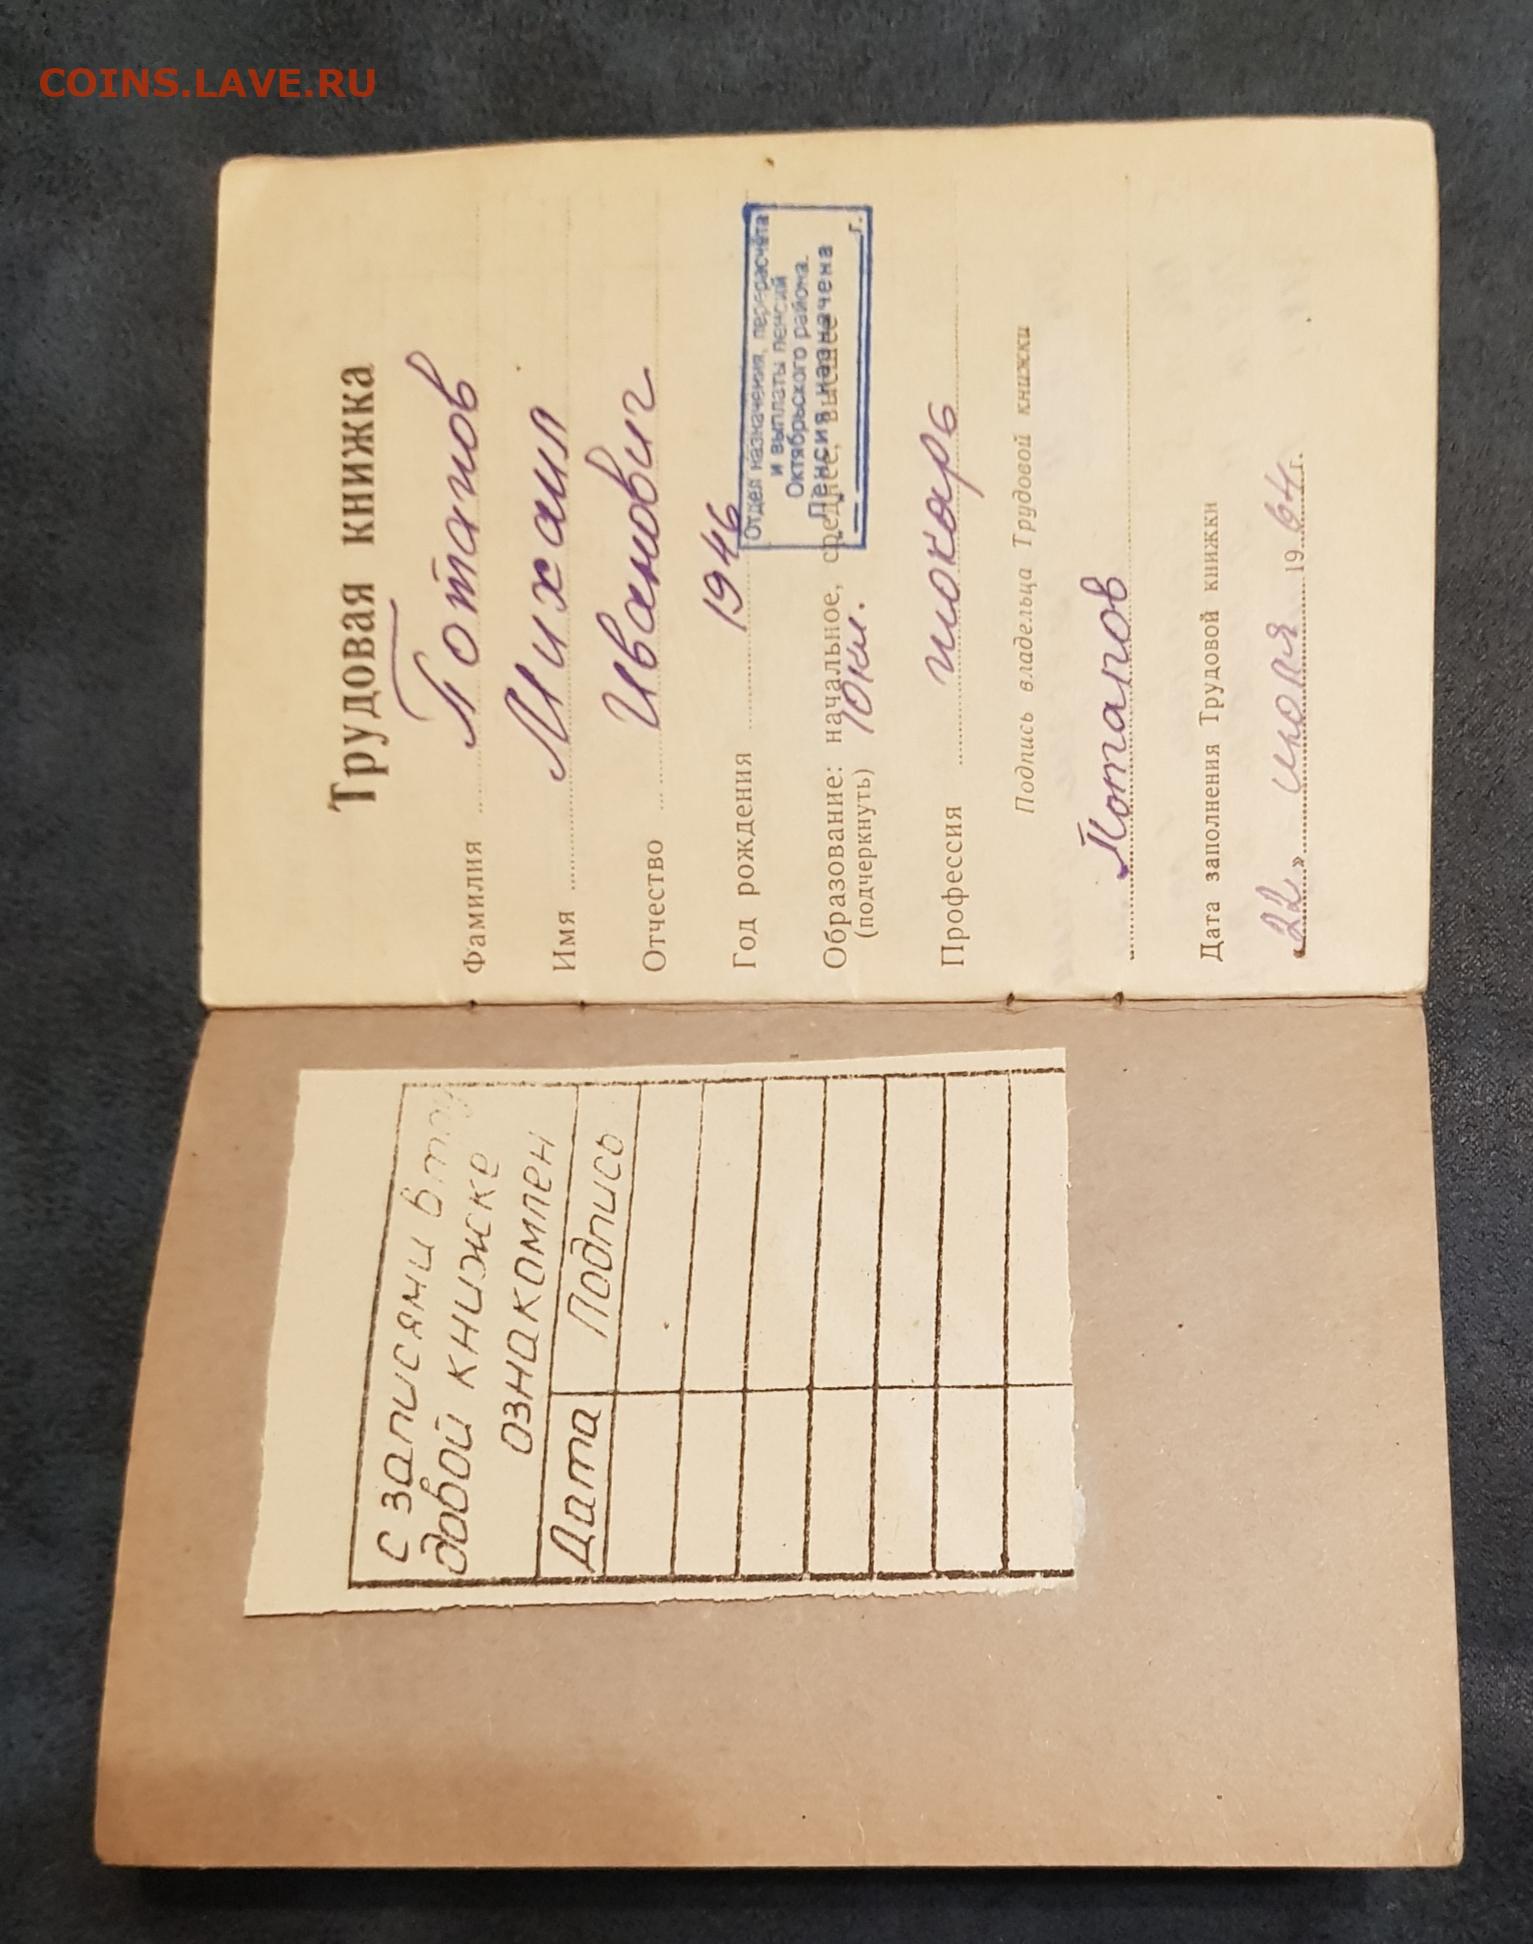 COINS.LAVE.RU
с записями в тру
довой книжке
ознакомлен
Дата Подпись
Трудовая книжка
Фамилия Потапов
Имя Михаил
Отчество Иванович
Год рождения 1946
Отдел назначения, перерасчёта
и выплаты пенсий
Октябрьского района.
Пенсия назначена
г.
Образование: начальное, среднее, высшее
(подчеркнуть) 10 кл.
Профессия токарь
Подпись владельца Трудовой книжки
Потапов
Дата заполнения Трудовой книжки
22 » июля 1964 г.